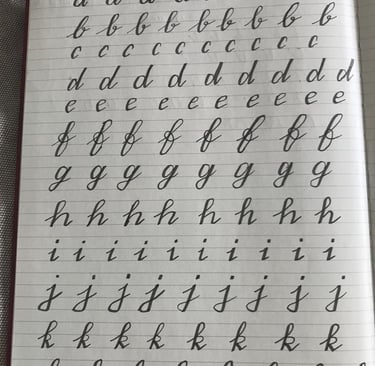 b b b b b b b b b
c c c c c c c c c c
d d d d d d d d d
e e e e e e e e e e
f f f f f f f f
g g g g g g g g
h h h h h h h h
i i i i i i i i i i
j j j j j j j j j
k k k k k k k k